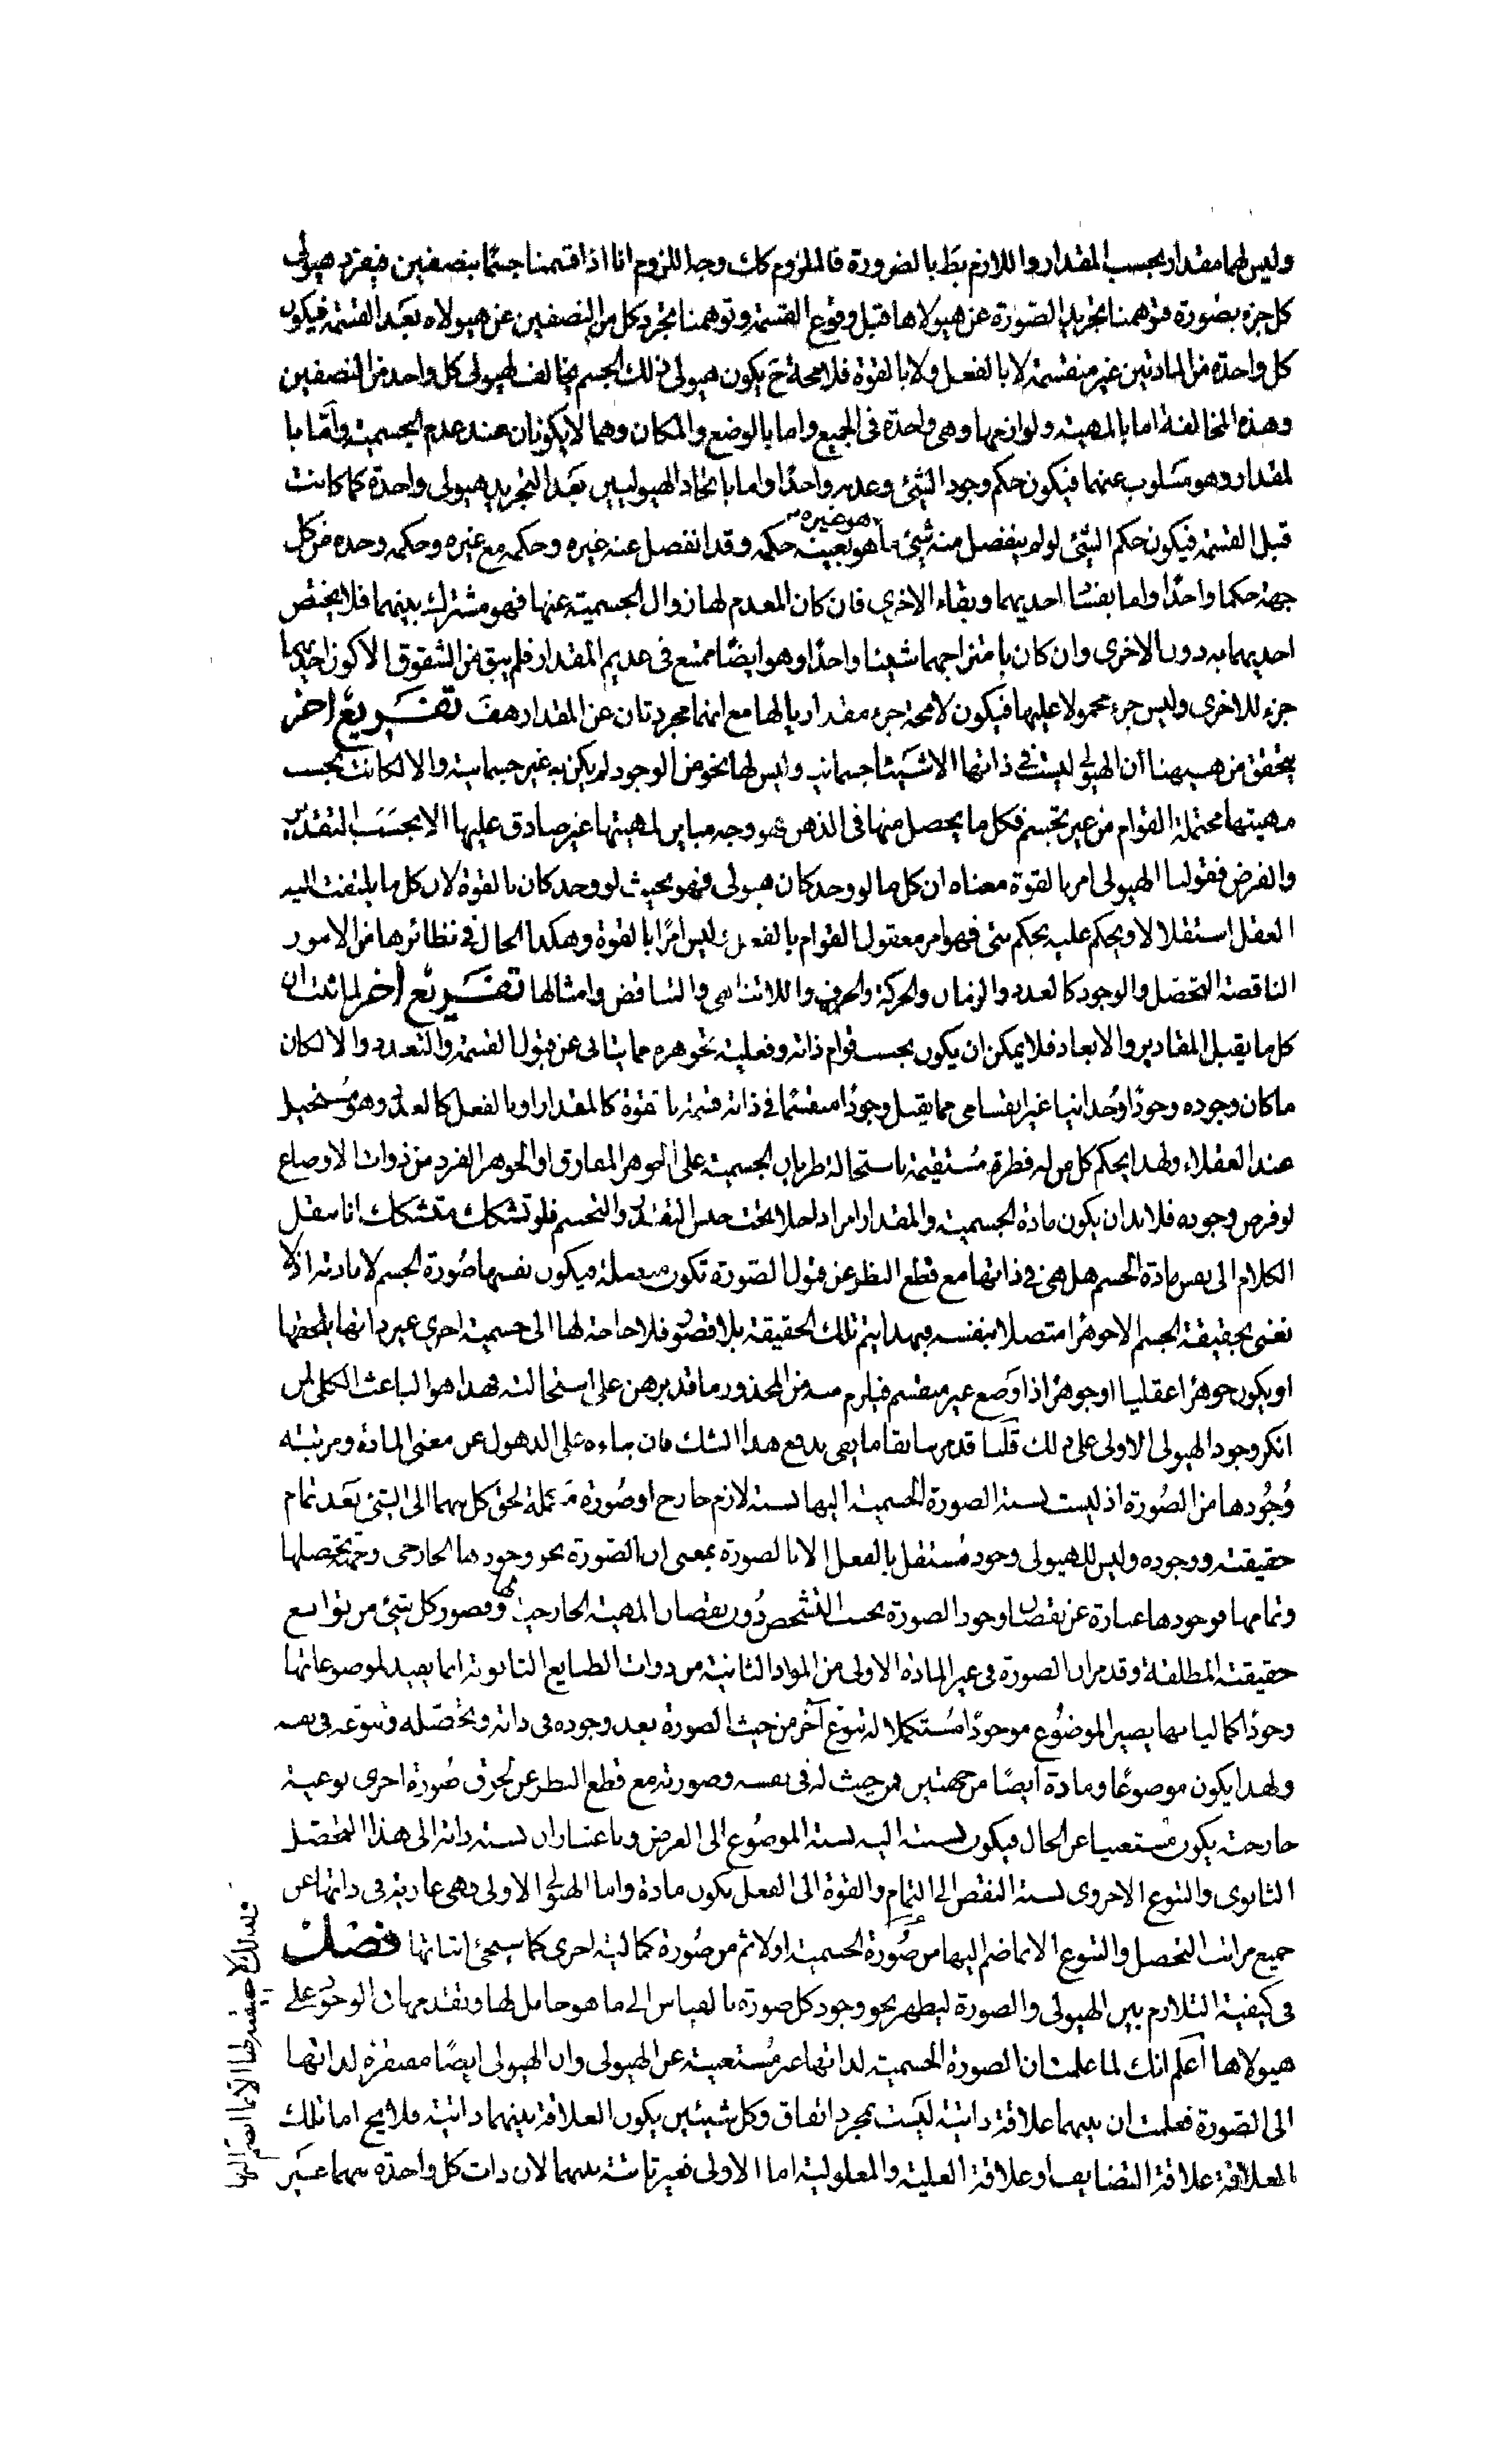 وليس لهما مقدار بحسب المقدار واللازم بط بالضرورة فالملزوم كك وجه اللزوم انا اذا قسمنا جسما بنصفين فيفرد هيولى
كل جزء بصورة فتوهمنا تجريد الصورة عن هيولاها قبل وقوع القسمة وتوهمنا تجرد كل من النصفين عن هيولاه بعد القسمة فيكون
كل واحدة من المادتين غير منقسمة لا بالفعل ولا بالقوة فلا محلة ح يكون هيولى ذلك الجسم يخالف لهيولى كل واحد من النصفين
وهذه المخالفة اما بالمهية ولوازمها وهى واحدة فى الجميع واما بالوضع والمكان وهما لا يكونان عند عدم الجسمية واما با
لمقدار وهو مسلوب عنهما فيكون حكم وجود الشئ وعدمه واحدًا واما باتحاد الهيوليين بعد التجريد هيولى واحدة كما كانت
قبل القسمة فيكون حكم الشئ لو لم ينفصل منه شئ ما هو غيره هو بعينه حكمه وقد انفصل عنه غيره وحكمه مع غيره وحكمه وحده من كل
جهة حكما واحدًا واما بفساد احديهما وبقاء الاخرى فان كان المعدم لها زوال الجسمية عنها فهو مشترك بينهما فلا يختص
احديهما به دون الاخرى وان كان بامتزاجهما شيئا واحدًا وهو ايضًا ممتنع فى عديم المقدار فلم يبق من الشقوق الا كون احديهما
جزء للاخرى وليس جزء محمولا عليها فيكون لا محة جزء مقداريا لها مع انهما مجردتان عن المقدار هف تفريع اخر
يتحقق من هيهنا ان الهيولى ليست فى ذاتها الا شيئا جسمانيه وليس لها نحو من الوجود لم يكن به غير جسمانية والا لكانت بحسب
مهيتها محتملة القوام من غير تجسم فكل ما يحصل منها فى الذهن فهو وجه مباين لمهيتها غير صادق عليها الا بحسب التقدير
والفرض فقولنا الهيولى امر بالقوة معناه ان كل ما لو وجد كان هيولى فهو بحيث لو وجد كان بالقوة لان كل ما يلتفت اليه
العقل استقلالا ويحكم عليه بحكم شئ فهو امر معقول القوام بالفعل ليس امرًا بالقوة وهكذا الحال فى نظائرها من الامور
الناقصة التحصل والوجود كالعدد والزمان والحركة والحرف واللاتناهى والتناقض وامثالها تفريع أخر لما ثبت ان
كل ما يقبل المقادير والابعاد فلا يمكن ان يكون بحسب قوام ذاته وفعلية تجوهره مما يتابى عن قبول القسمة والتعدد والا لكان
ما كان وجوده وجودًا وحدانيا غير انقسامى مما يقبل وجودًا منقسمًا فى ذاته قسمة بالقوة كالمقدار او بالفعل كالعدد وهو مستحيل
عند العقلاء ولهذا يحكم كل من له فطرة مستقيمة باستحالة طريان الجسمية على الجوهر المفارق او الجوهر الفرد من ذوات الاوضاع
لو فرض وجوده فلابد ان يكون مادة الجسمية والمقدار امرا داخلا تحت جنس التقدر والتجسم فلو تشكك متشكك انا ننقل
الكلام الى نفس مادة الجسم هل هى فى ذاتها مع قطع النظر عن قبول الصورة تكون متصلة فيكون نفسها صورة الجسم لا مادته اذ لا
نعنى بحقيقة الجسم الا جوهرا متصلا بنفسه فبهذا يتم تلك الحقيقة بلا قصور فلا حاجة لها الى جسمية اخرى غير ذاتها
او يكون جوهرا عقليا او جوهرا ذا وضع غير منقسم فيلزم منه من المحذور ما قد برهن على استحالته فهذا هو الباعث الكلى لمن
انكر وجود الهيولى الاولى على ذلك قلنا قد مر سابقا ما يفى بدفع هذا الشك فان بناءه على الذهول عن معنى المادة ومرتبته
وجودها من الصورة اذ ليست نسبة الصورة الجسمية اليها نسبة لازم خارج او صورة مكملة لحق كل منهما الى الشئ بعد تمام
حقيقته ووجوده وليس للهيولى وجود مستقل بالفعل الا بالصورة بمعنى ان الصورة نحو وجودها الخارجى وجهة تحصلها
وتمامها فوجودها عبارة عن نقصان وجود الصورة بحسب التشخص دون نقصان المهية الخارجية لها وقصور كل شئ من توابع
حقيقته المطلقة وقد مر ان الصورة فى غير المادة الاولى من المواد الثانية من ذوات الطبايع الثانوية انما يفيد لموضوعاتها
وجودًا كماليا بها يصير الموضوع موجودًا مستكملا له تنوع آخر من حيث الصورة بعد وجوده فى ذاته وتحصله وتنوعه فى نفسه
ولهذا يكون موضوعًا ومادة ايضًا من جهتين فمن حيث له فى نفسه وصورته مع قطع النظر عن لحوق صورة اخرى نوعية
خارجة يكون مستغنيا عن الحال فيكون نسبته اليه نسبة الموضوع الى العرض وباعتبار ان نسبة ذاته الى هذا التحصل
الثانوى والتنوع الاخروى نسبة النقص الى التمام والقوة الى الفعل يكون مادة واما الهيولى الاولى فهى عارية فى ذاتها عن
جميع مراتب التحصل والتنوع الا بما ضم اليها من صورة الجسمية اولا ثم من صورة كمالية اخرى كما سيجئ اثباتها فصل
فى كيفية التلازم بين الهيولى والصورة ليظهر نحو وجود كل صورة بالقياس الى ما هو حامل لها وتقدمها فى الوجود على
هيولاها اعلم انك لما علمت ان الصورة الجسمية لذاتها غير مستغنية عن الهيولى وان الهيولى ايضًا مفتقرة لذاتها
الى الصورة فعلمت ان بينهما علاقة ذاتية ليست بمجرد اتفاق وكل شيئين يكون العلاقة بينهما ذاتية فلا يخ اما تلك
العلاقة علاقة التضايف او علاقة العلية والمعلولية اما الاولى فغير ثابتة بينهما لان ذات كل واحدة منهما غير